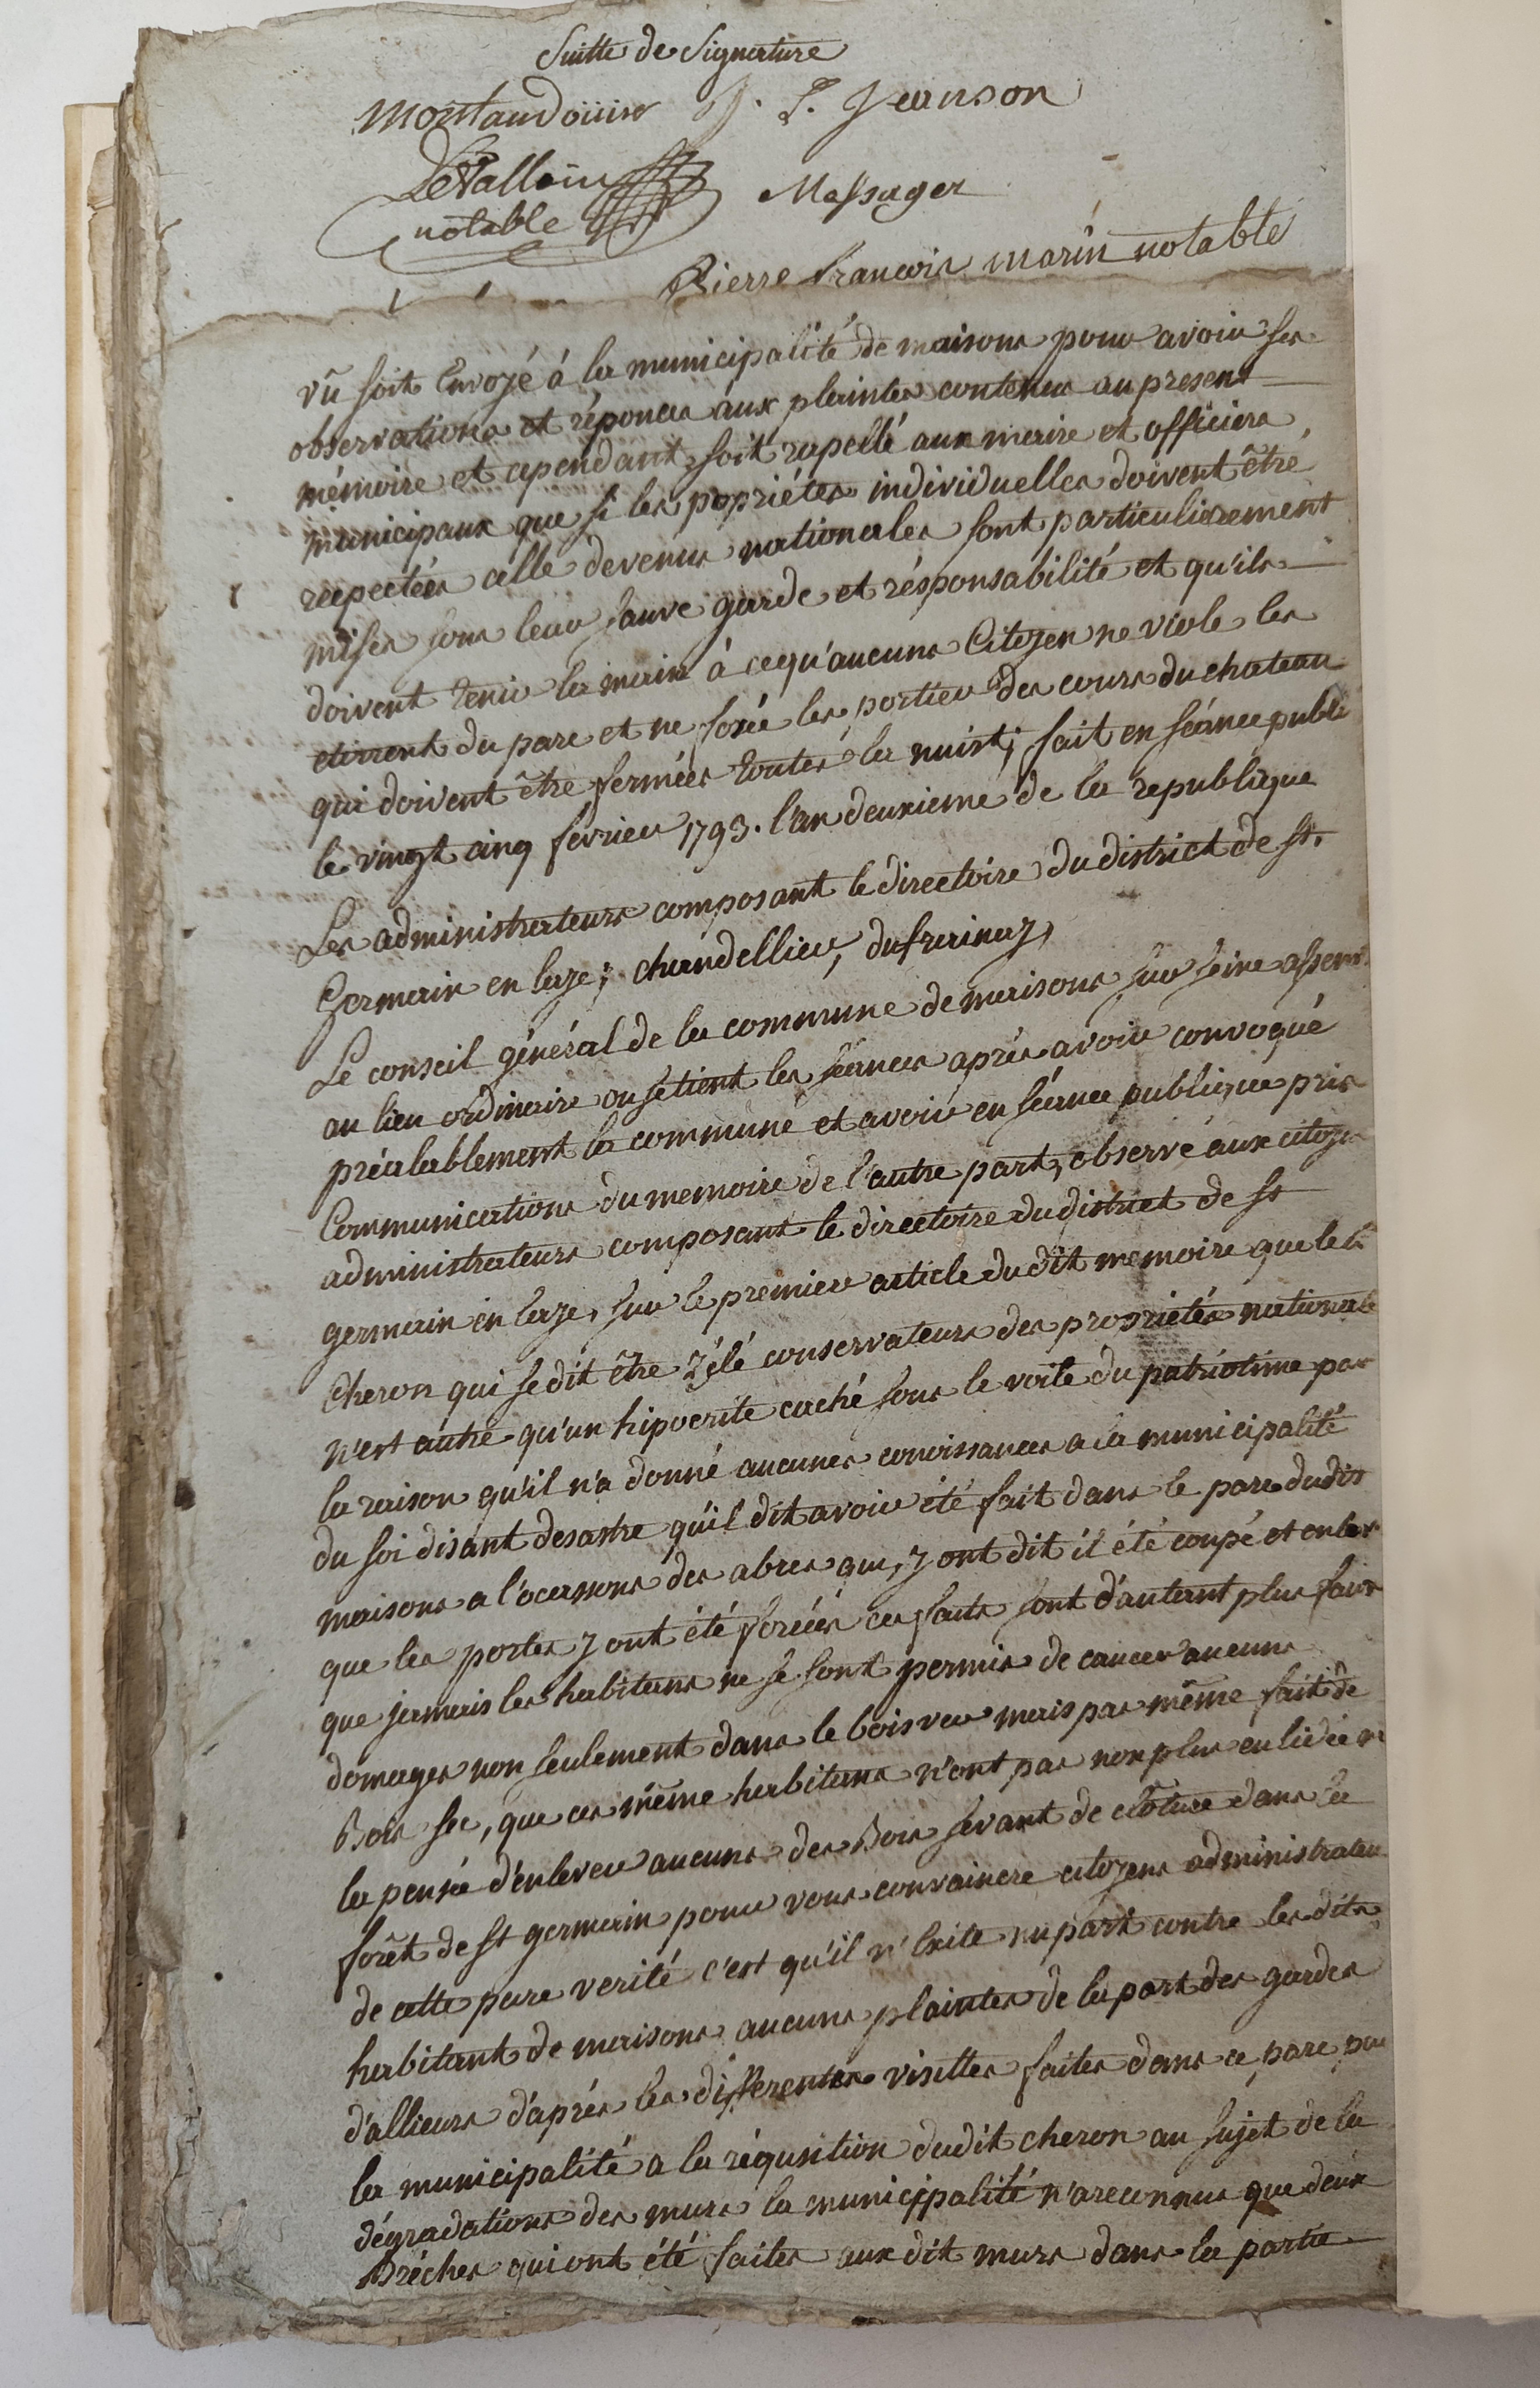 Suitte de Signature
Montaudoüin J. P. Jeanson
LeVallois Messager
notable
Pierre francois marin notable
vû soit Envoyé à la municipalité de maisons pour avoir ses
observations et réponces aux plaintes contenus au present
mémoire et cependant, soit rapellé aux maire et officiers
municipaux que si les popriétés individuelles doivent être
respectées celle devenus nationales sont particulierement
mises sous leur sauve garde et résponsabilité et qu'ils
doivent tenir la main à cequ'aucuns Citoyen ne viole les
du parc et ne forée les portier des cours du chateau
qui doivent être fermées toutes la nuist; fait en séance publi
le vingt cinq fevrier 1793. l'an deuxieme de la republique
Les administrateurs composant le directoire du district de St.
Germain en laye; chandellier, dufrainay
Le conseil général de la commune de maisons sur seine assem
au lieu ordinaire ou se tient les séances aprés avoir convoqué
préalablement la commune et avoir en séance publique pris
Communications du memoire de l'autre part, observé aux citoye
administrateurs composant le directoire du district de St
germain en laye, sur le premier article du dit memoire que le
Cheron qui se dit être zélé conservateurs des propriétés national
n'est autre qu'un hipocrite caché sous le voile du patriotime par
la raison qu'il n'a donné aucunes connoissances a la municipalité
du soi disant desastre qu'il dit avoir été fait dans le parc dudit
maisons a l'ocassons des abres qui, y ont dit il été coupé et enlev
que les portes y ont été forcées ces faits sont d'autant plus faux
que jamais les habitans ne se sont permis de causer aucuns
domages non seulement dans le bois ver mais pas même fait de
Bois sec, que ces même habitans n'ont pas non plus eu lidée n
la pensée d'enlever aucuns des Bois servant de clôture dans la
forêt de St germain pour vous convaincre citoyens administrateu
de cette pure verité c'est qu'il n'Exite nu part contre les dits
habitant de maisons aucuns plaintes de la part des gardes
d'allieurs d'aprés les differentes visittes faites dans ce parc par
la municipalité a la réqusition dudit cheron au sujet de la
dégradations des murs la municipalité n'a reconnus que deux
Bréches qui ont été faites aux dit murs dans la partie